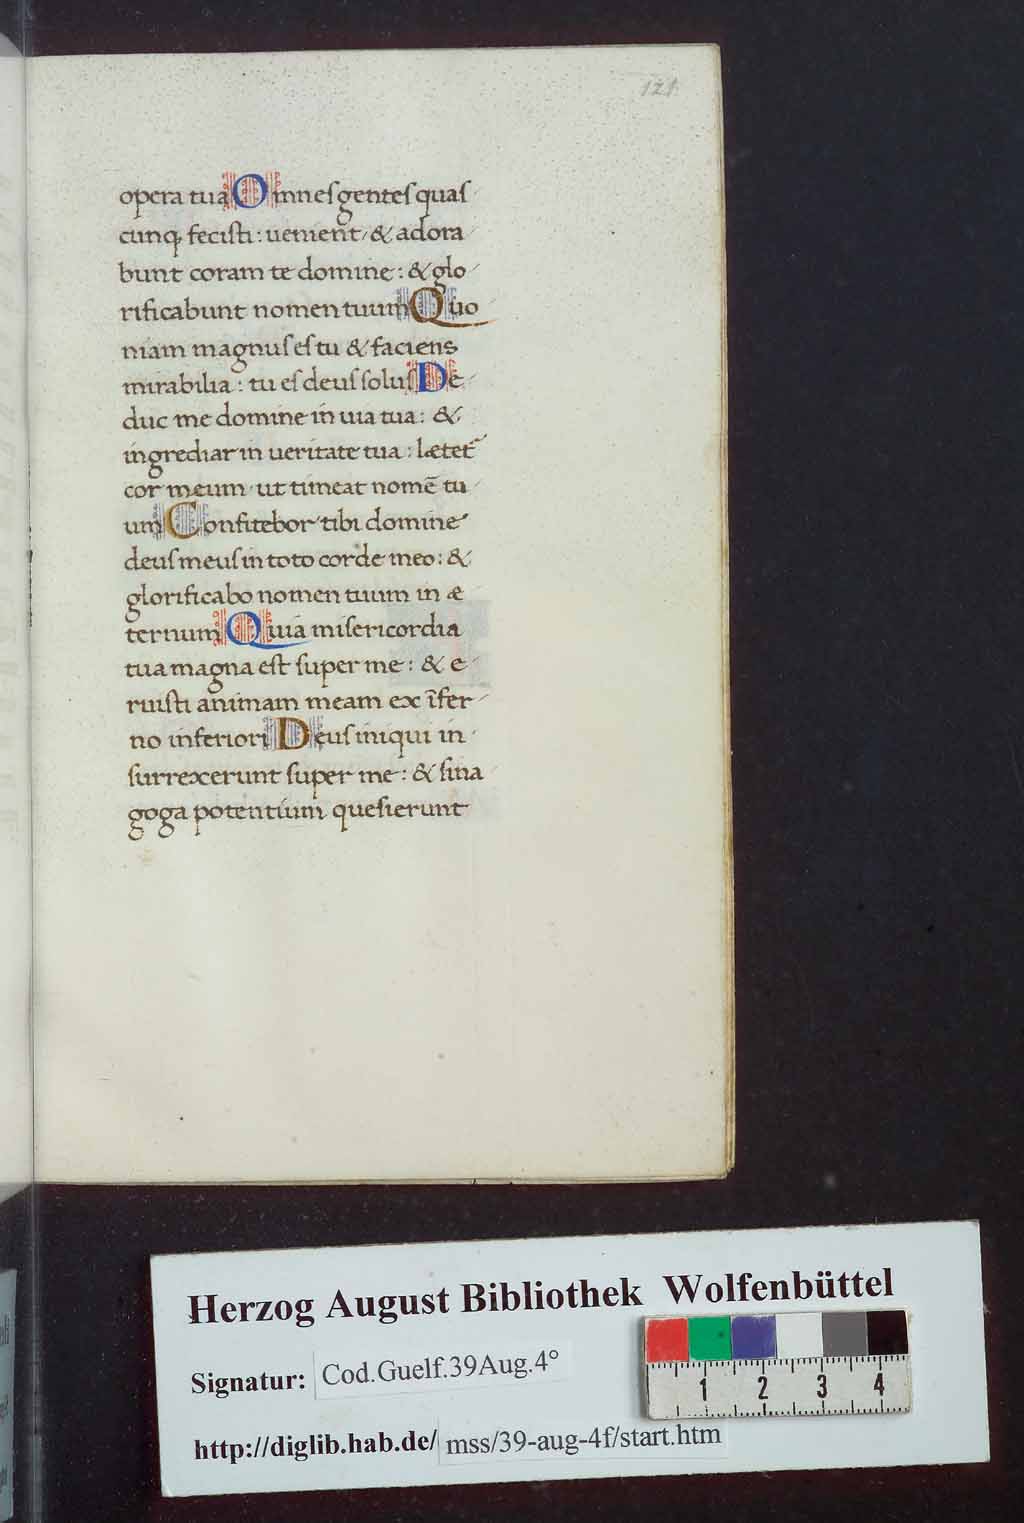 121
opera tua Omnes gentes quas
cunq; fecisti: uenient, & adora
bunt coram te domine: & glo
rificabunt nomen tuum Quo
niam magnus es tu & faciens
mirabilia: tu es deus solus De
duc me domine in uia tua: &
ingrediar in ueritate tua: lætet̄
cor meum ut timeat nomē tu
um Confitebor tibi domine
deus meus in toto corde meo: &
glorificabo nomen tuum in æ
ternum Quia misericordia
tua magna est super me: & e
ruisti animam meam ex īfer
no inferiori Deus iniqui in
surrexerunt super me: & sina
goga potentium quesierunt
Herzog August Bibliothek Wolfenbüttel
Signatur: Cod.Guelf.39Aug.4°
http://diglib.hab.de/ mss/39-aug-4f/start.htm
1 2 3 4